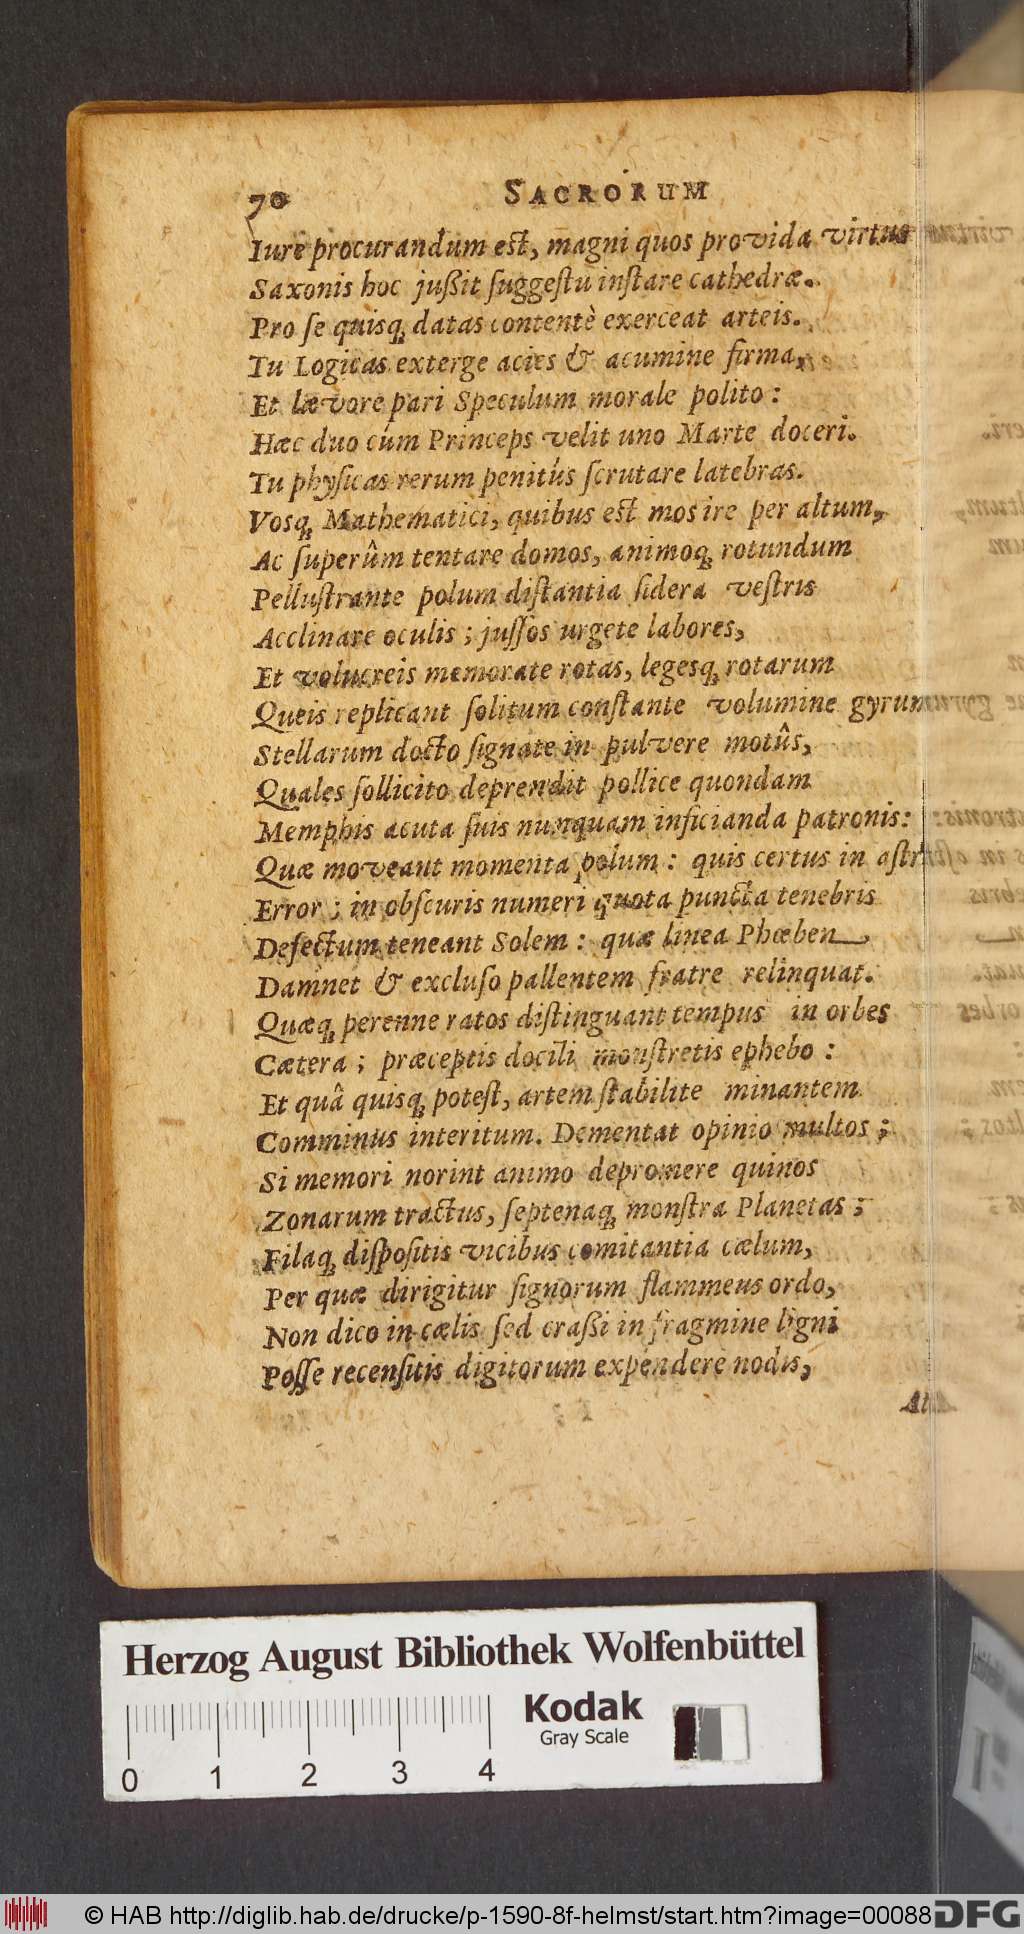 70 SACRORUM
Iure procurandum est, magni quos provida virtus
Saxonis hoc jußit suggestu instare cathedræ.
Pro se quisq; datas contentè exerceat arteis.
Tu Logicas exterge acies & acumine firma,
Et lævore pari Speculum morale polito:
Hæc duo cúm Princeps velit uno Marte doceri.
Tu physicas rerum penitùs scrutare latebras.
Vosq; Mathematici, quibus est mos ire per altum,
Ac superûm tentare domos, animoq; rotundum
Pellustrante polum distantia sidera vestris
Acclinare oculis; jussos urgete labores,
Et volucreis memorate rotas, legesq; rotarum
Queis replicant solitum constante volumine gyrum
Stellarum docto signate in pulvere motûs,
Quales sollicito deprendit pollice quondam
Memphis acuta suis nunquam inficianda patronis:
Quæ moveant momenta polum: quis certus in astris
Error; in obscuris numeri quota puncta tenebris
Defectum teneant Solem: quæ linea Phœben
Damnet & excluso pallentem fratre relinquat.
Quæq; perenne ratos distinguant tempus in orbes
Cætera; præceptis docili monstretis ephebo:
Et quâ quisq; potest, artem stabilite minantem
Comminus interitum. Dementat opinio multos;
Si memori norint animo depromere quinos
Zonarum tractus, septenaq; monstra Planetas;
Filaq; dispositis vicibus comitantia cælum,
Per quæ dirigitur signorum flammeus ordo,
Non dico in cælis sed craßi in fragmine ligni
Posse recensitis digitorum expendere nodis,
At
Herzog August Bibliothek Wolfenbüttel
Kodak
Gray Scale
0 1 2 3 4
© HAB http://diglib.hab.de/drucke/p-1590-8f-helmst/start.htm?image=00088
DFG